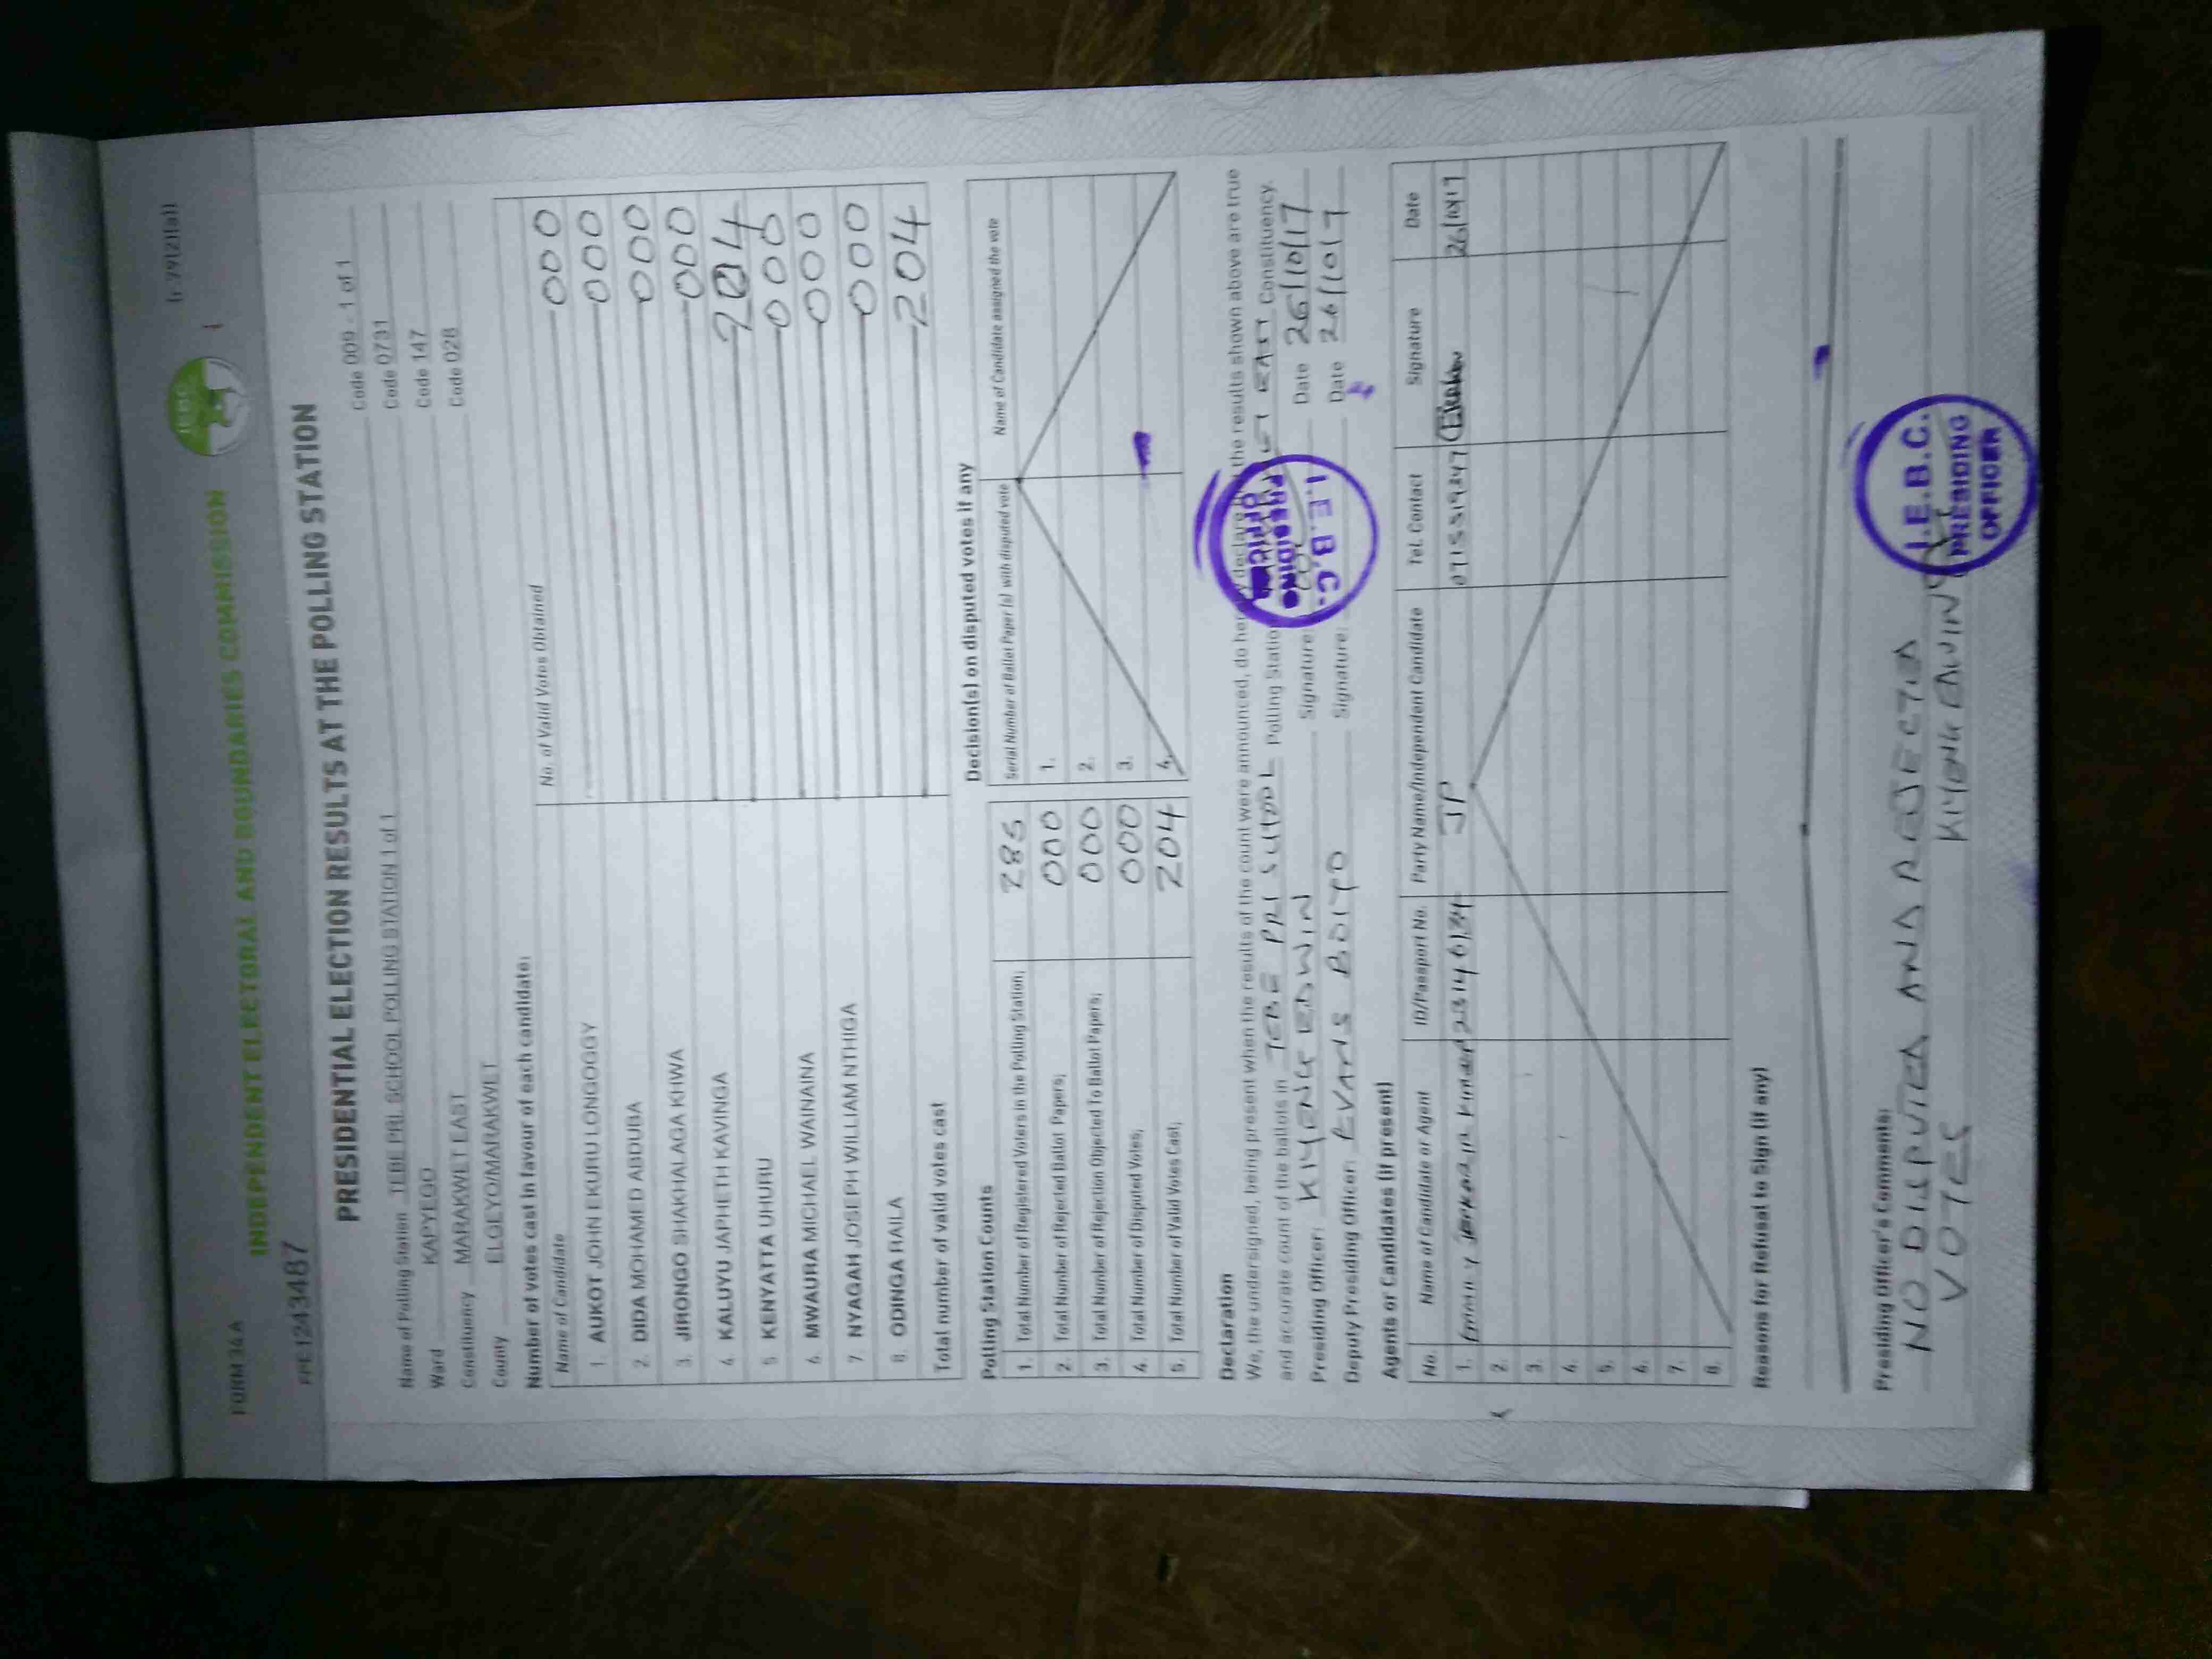 FORM 34 A
(r.79(2)(a))
IEBC
INDEPENDENT ELECTORAL AND BOUNDARIES COMMISSION
PRE1243487
PRESIDENTIAL ELECTION RESULTS AT THE POLLING STATION
Name of Polling Station TEBE PRI. SCHOOL POLLING STATION 1 of 1 Code 009 - 1 of 1
Ward KAPYEGO Code 0731
Constituency MARAKWET EAST Code 147
County ELGEYO/MARAKWET Code 028
Number of votes cast in favour of each candidate:
Name of Candidate No. of Valid Votes Obtained
1. AUKOT JOHN EKURU LONGOGGY 000
2. DIDA MOHAMED ABDUBA 000
3. JIRONGO SHAKHALAGA KHWA 000
4. KALUYU JAPHETH KAVINGA 000
5 KENYATTA UHURU 204
6. MWAURA MICHAEL WAINAINA 000
7. NYAGAH JOSEPH WILLIAM NTHIGA 000
8. ODINGA RAILA 000
Total number of valid votes cast 204
Polling Station Counts
1. Total Number of Registered Voters in the Polling Station; 286
2. Total Number of Rejected Ballot Papers; 000
3. Total Number of Rejection Objected To Ballot Papers; 000
4. Total Number of Disputed Votes; 000
5. Total Number of Valid Votes Cast; 204
Decision(s) on disputed votes if any
Serial Number of Ballot Paper (s) with disputed vote Name of Candidate assigned the vote
1.
2.
3.
4.
Declaration
We, the undersigned, being present when the results of the count were announced, do hereby declare that the results shown above are true
and accurate count of the ballots in TEBE PRI SCHOOL Polling Station EAST Constituency.
Presiding Officer: KIYENG EDWIN Signature: Date 26/10/17
Deputy Presiding Officer: EVANS BOIYO Signature: Date 26/10/17
I.E.B.C.
PRESIDING
OFFICER
Agents or Candidates (if present)
No. Name of Candidate or Agent ID/Passport No. Party Name/Independent Candidate Tel. Contact Signature Date
1. JP 26/10/17
2.
3.
4.
5.
6.
7.
8.
Reasons for Refusal to Sign (if any)
Presiding Officer's Comments:
NO DISPUTED AND REJECTED
VOTES KIYENG EDWIN
I.E.B.C.
PRESIDING
OFFICER